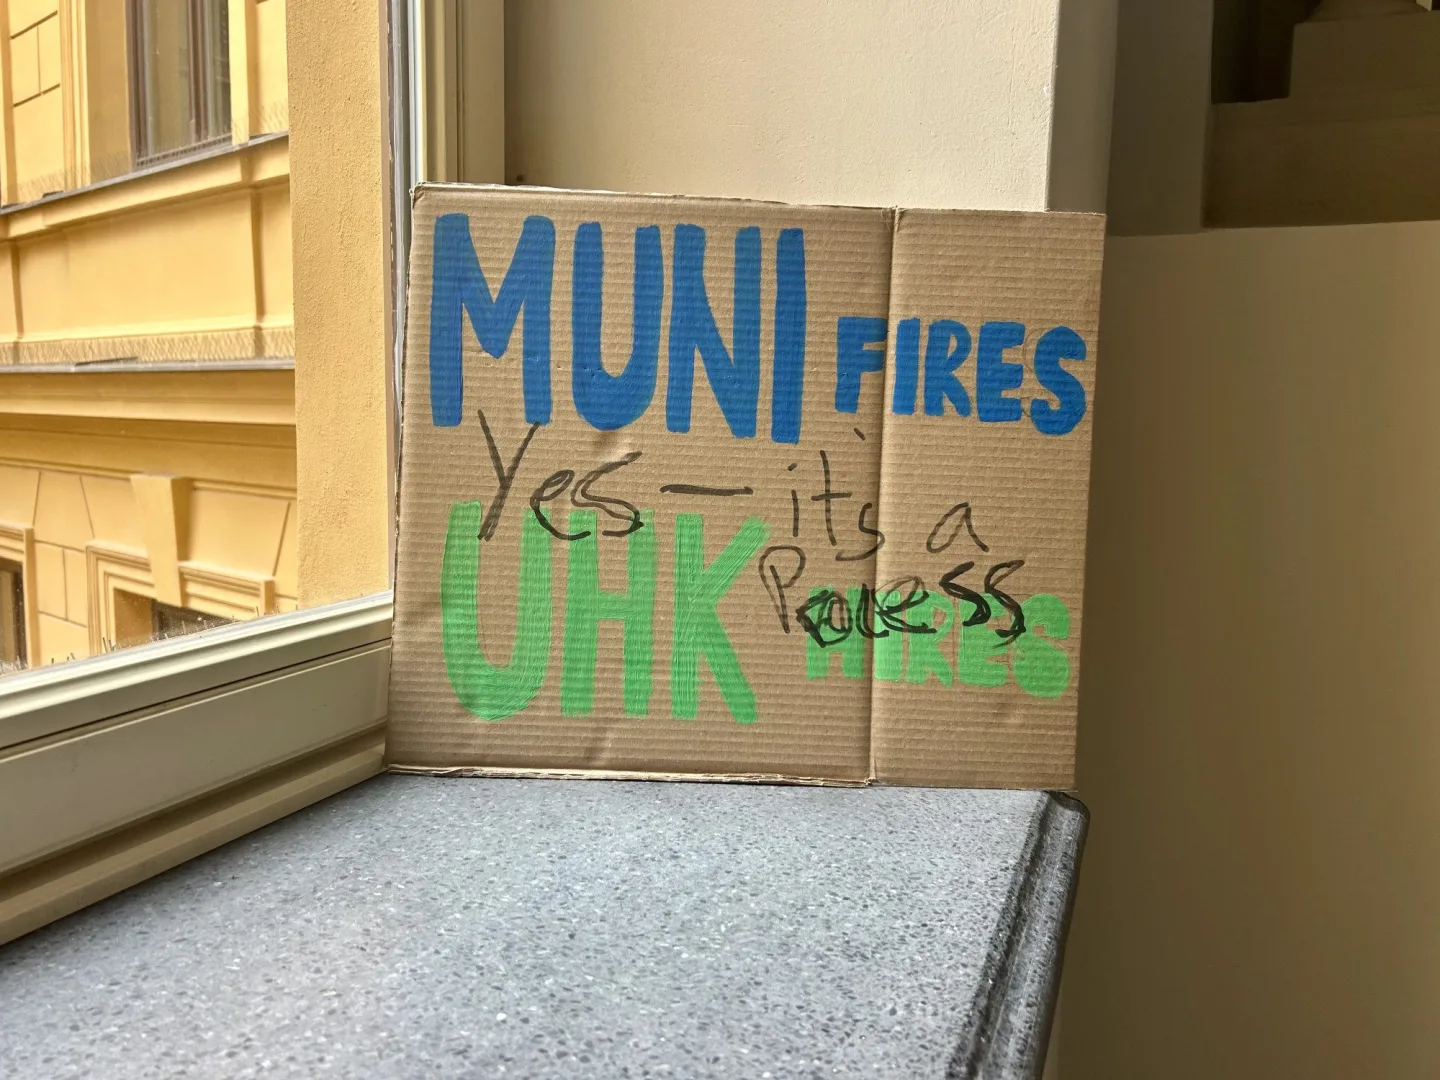 MUNI FIRES
Yes – it's a
Process
UHK HIRES